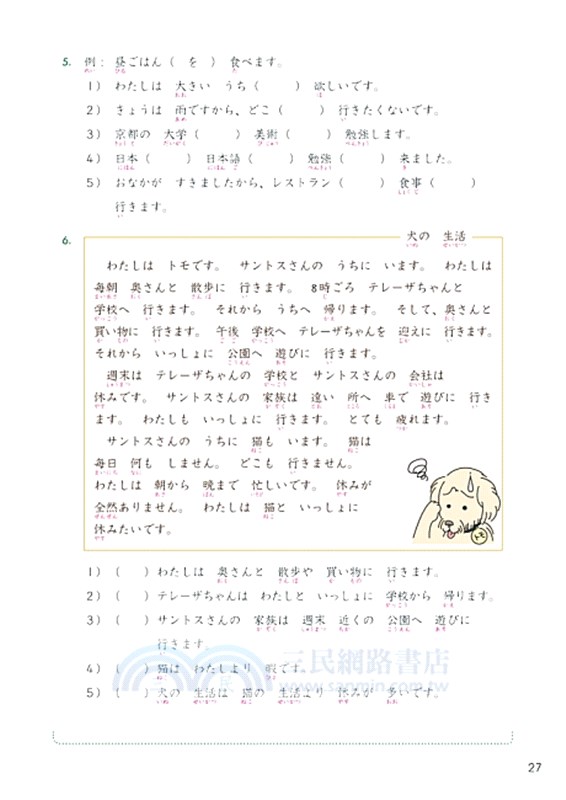 5. 例： 昼ごはん（ を ） 食べます。
1） わたしは 大きい うち（　　） 欲しいです。
2） きょうは 雨ですから、どこ（　　） 行きたくないです。
3） 京都の 大学（　　） 美術（　　） 勉強します。
4） 日本（　　） 日本語（　　） 勉強（　　） 来ました。
5） おなかが すきましたから、レストラン（　　） 食事（　　）
行きます。
6. 犬の 生活
わたしは トモです。 サントスさんの うちに います。 わたしは
毎朝 奥さんと 散歩に 行きます。 8時ごろ テレーザちゃんと
学校へ 行きます。 それから うちへ 帰ります。 そして、奥さんと
買い物に 行きます。 午後 学校へ テレーザちゃんを 迎えに 行きます。
それから いっしょに 公園へ 遊びに 行きます。
週末は テレーザちゃんの 学校と サントスさんの 会社は
休みです。 サントスさんの 家族は 遠い 所へ 車で 遊びに 行き
ます。 わたしも いっしょに 行きます。 とても 疲れます。
サントスさんの うちに 猫も います。 猫は
毎日 何も しません。 どこも 行きません。
わたしは 朝から 晩まで 忙しいです。 休みが
全然ありません。 わたしは 猫と いっしょに
休みたいです。
トモ
1）（　　）わたしは 奥さんと 散歩や 買い物に 行きます。
2）（　　）テレーザちゃんは わたしと いっしょに 学校から 帰ります。
3）（　　）サントスさんの 家族は 週末 近くの 公園へ 遊びに
行きます。
4）（　　）猫は わたしより 暇です。
5）（　　）犬の 生活は 猫の 生活より 休みが 多いです。
三民網路書店
www.sanmin.com.tw
27